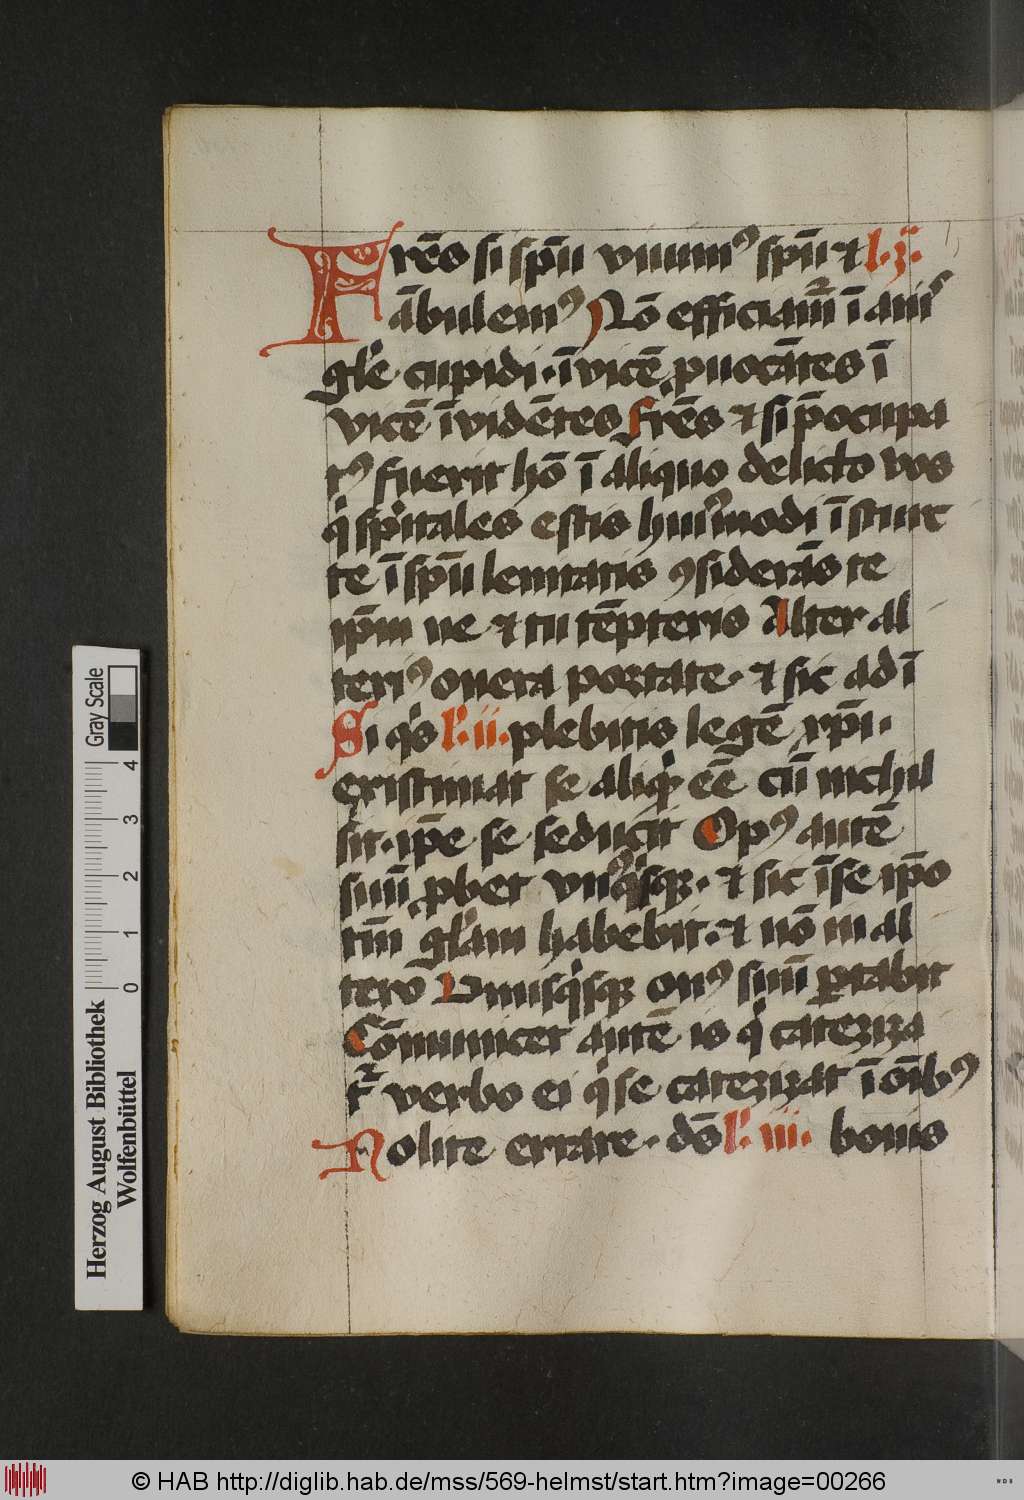 Frēs si spū viuimꝰ spū ⁊ l. z̄.
ābulemꝰ Nō efficiamᷣ ī anīs
glīe cupidi · īvicē ꝓuocātes ī
vicē īvidētes frēs ⁊ si p̄ocupa
tꝰ fuerit hō ī aliquo delicto vos
qͥ spͥitales estis huiꝰmodi īstruc
te ī spū lenitatis ꝯsiderās te
ip̄m ne ⁊ tu tēpteris Alter al
teriꝰ onera portate · ⁊ sic adī
Si qͥs l'. ii. plebitis legē xp̄i ·
existimat se aliqͥd eē cū nichil
sit · ip̄e se seducit Opꝰ autē
suū ꝓbet vnꝰqͥsqꝫ · ⁊ sic īse ip̄o
tm̄ glͥam habebit · ⁊ nō in al
tero Vnusqͥsqꝫ onꝰ suū ꝑtabit
Cōmunicet autē is qͥ cateziza
tᷣ verbo ei qͥ se catezizat ī oībꝰ
Nolite errare · dō l'. iii. bonis
Gray Scale
4 3 2 1 0
Herzog August Bibliothek
Wolfenbüttel
© HAB http://diglib.hab.de/mss/569-helmst/start.htm?image=00266